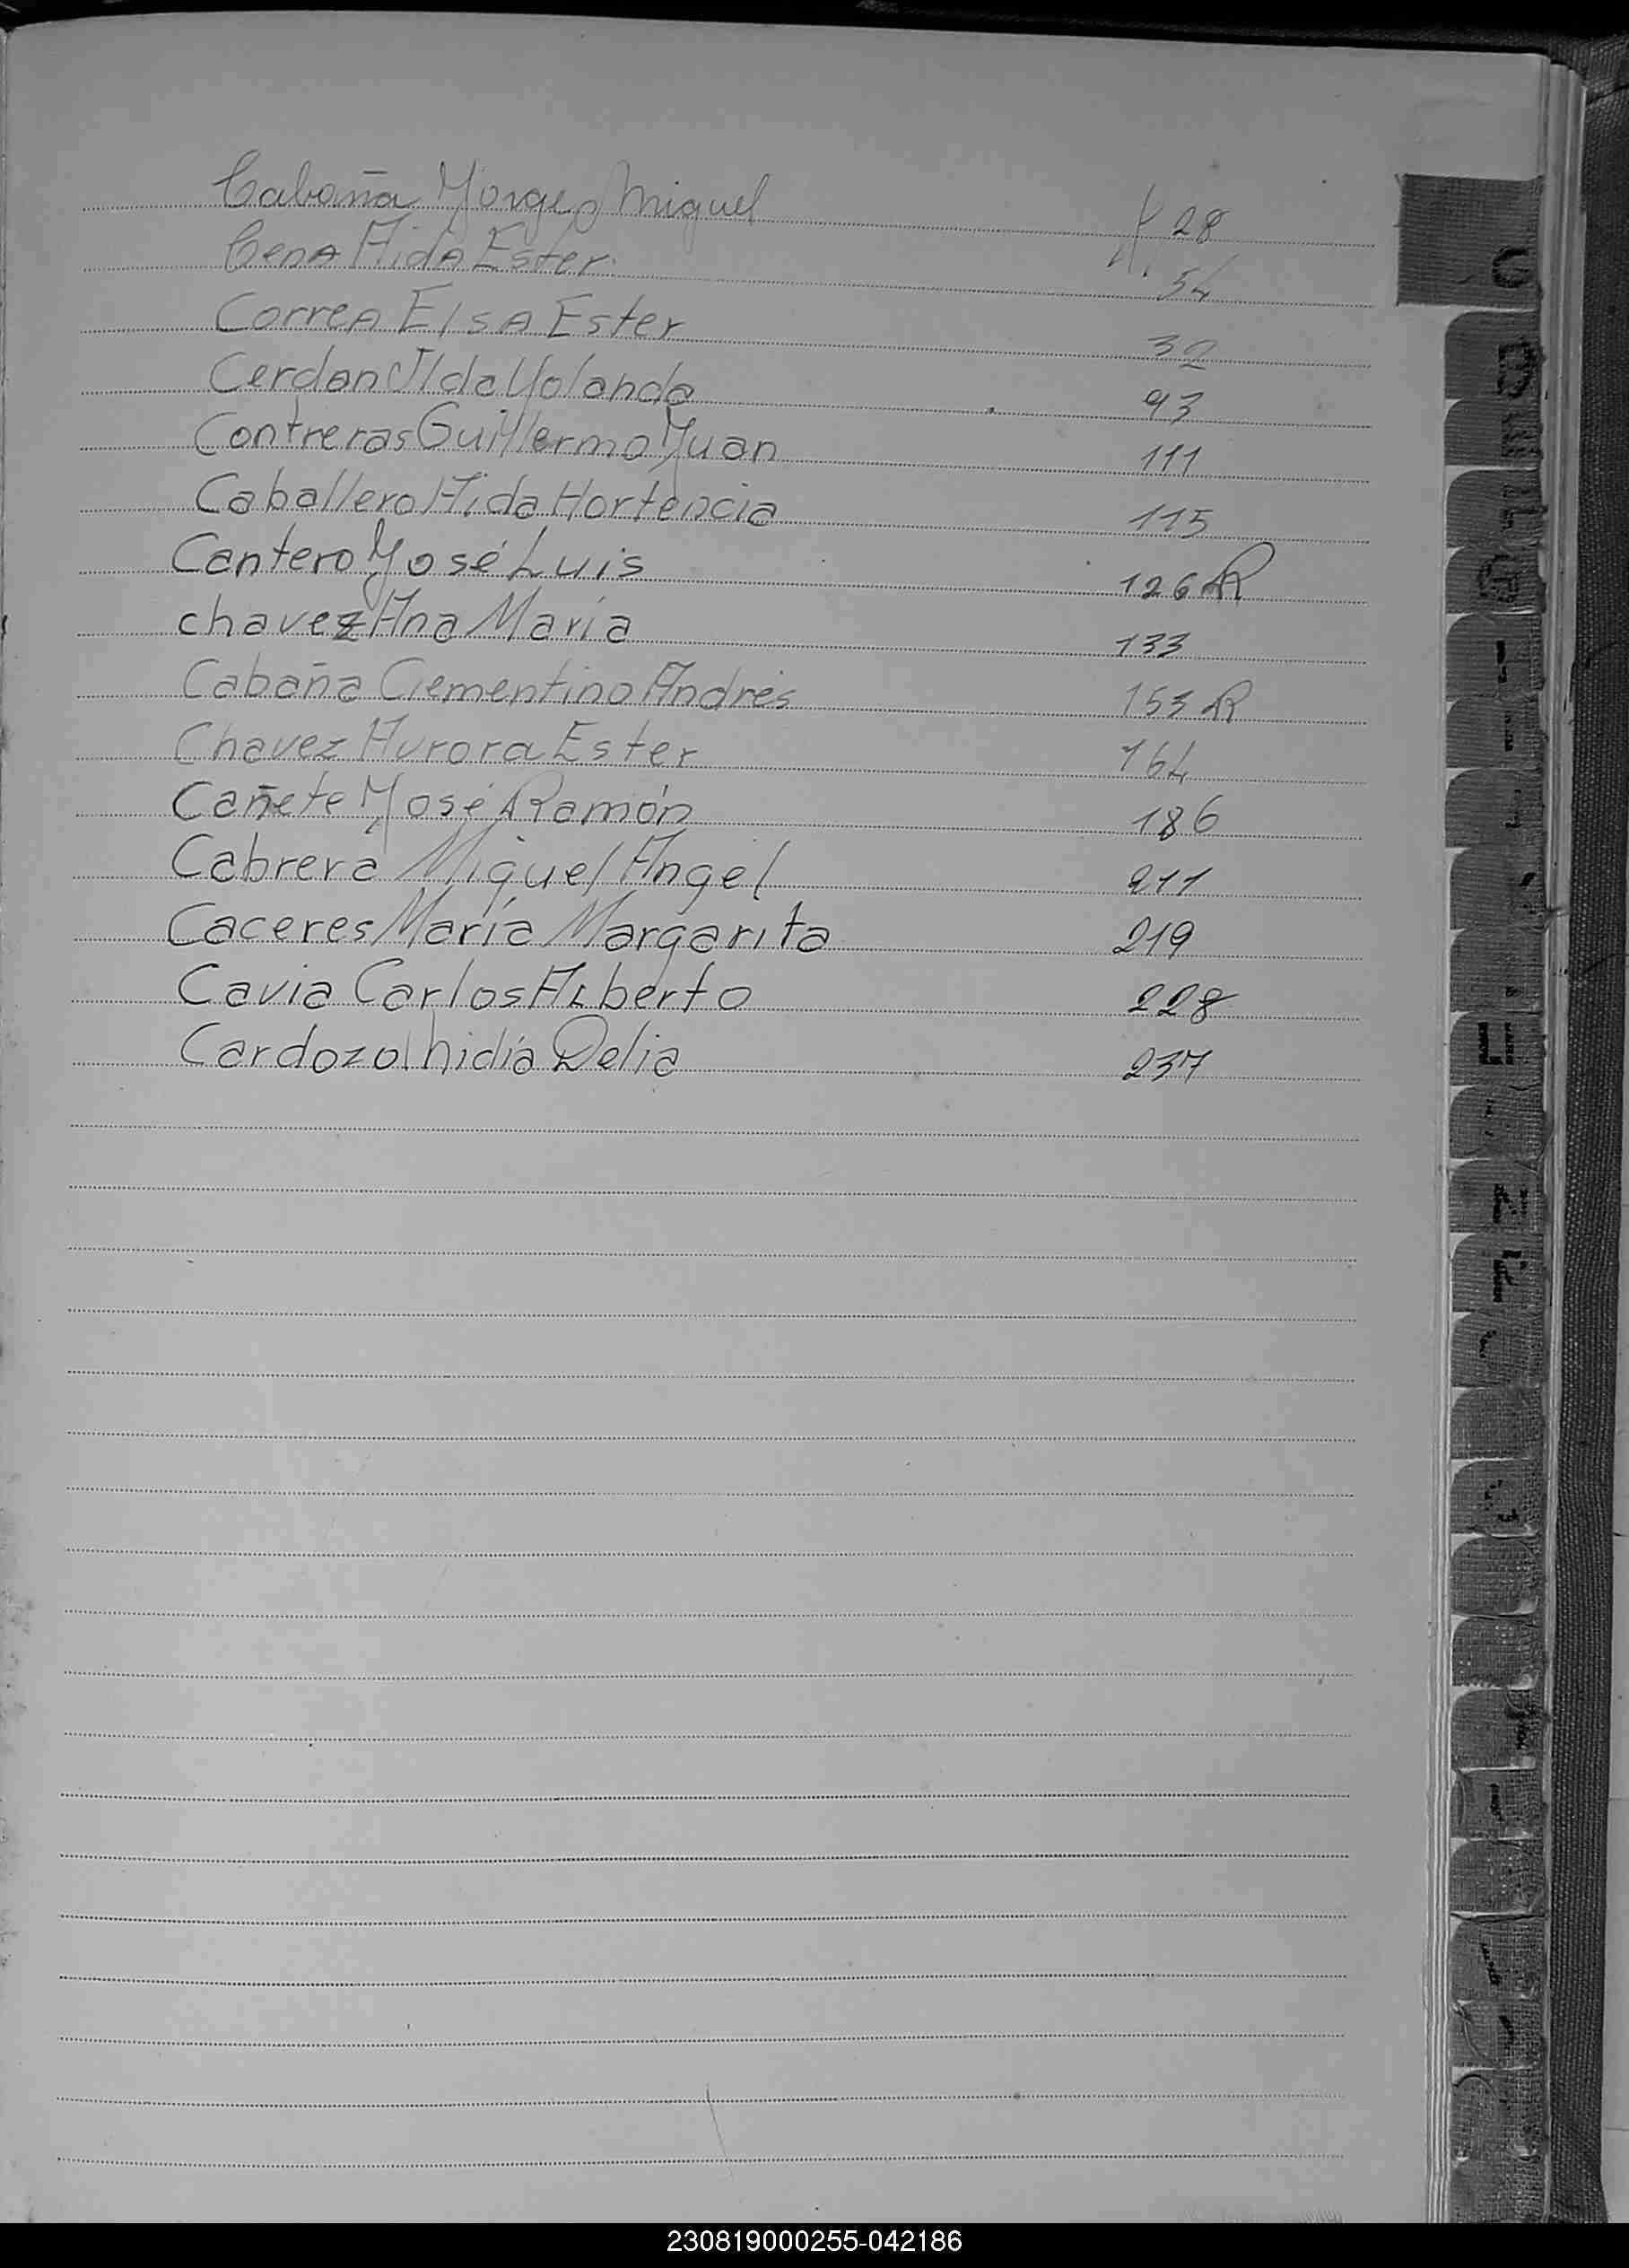 Cabaña Jorge Miguel f. 28
Cena Aida Ester 54
Correa Elsa Ester 32
Cerdan Ilda Yolanda 93
Contreras Guillermo Juan 111
Caballero Aida Hortencia 115
Cantero José Luis 126 R
chavez Ana María 133
Cabaña Clementino Andrés 153 R
Chavez Aurora Ester 164
Cañete José Ramón 186
Cabrera Miguel Angel 211
Caceres María Margarita 219
Cavia Carlos Alberto 228
Cardozo Nidia Delia 237
C
230819000255-042186